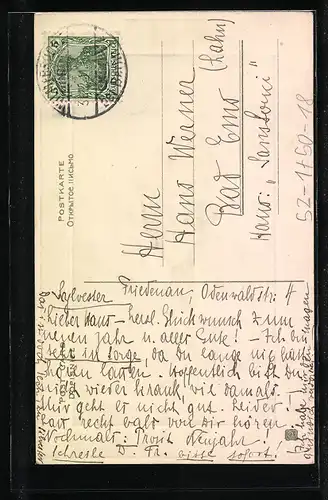 POSTKARTE
ОТКРЫТОЕ ПИСЬМО
Herrn
Hans Werner
Bad Ems (Lahn)
Haus: „Sanssouci"
SZ-1+50-18
Sylvester Friedenau, Odenwaldstr. 4
Lieber Hans – herzl. Glückwunsch zum
neuen Jahr u. alles Gute! – Ich bin
sehr in Sorge, da Du lange nichts hast
hören lassen. Hoffentlich bist Du
nicht wieder krank, wie damals.
Mir geht es nicht gut. Leider!
Lass recht bald von Dir hören.
Nochmals: Prosit Neujahr!
bitte sofort!